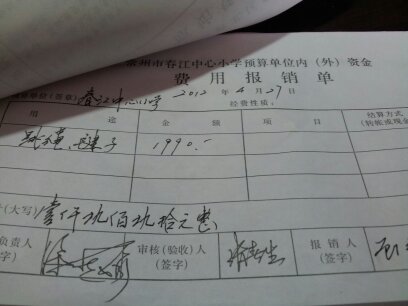 常州市春江中心小学预算单位内（外）资金
费用报销单
单位（签章）春江中心小学 2012 年 4 月 27 日 经费性质：
用途 金额 项目 结算方式
（转帐或现金
跳绳、毽子 1990.-
（大写）壹仟玖佰玖拾元整
负责人 审核（验收）人 报销人
字） （签字） （签字）